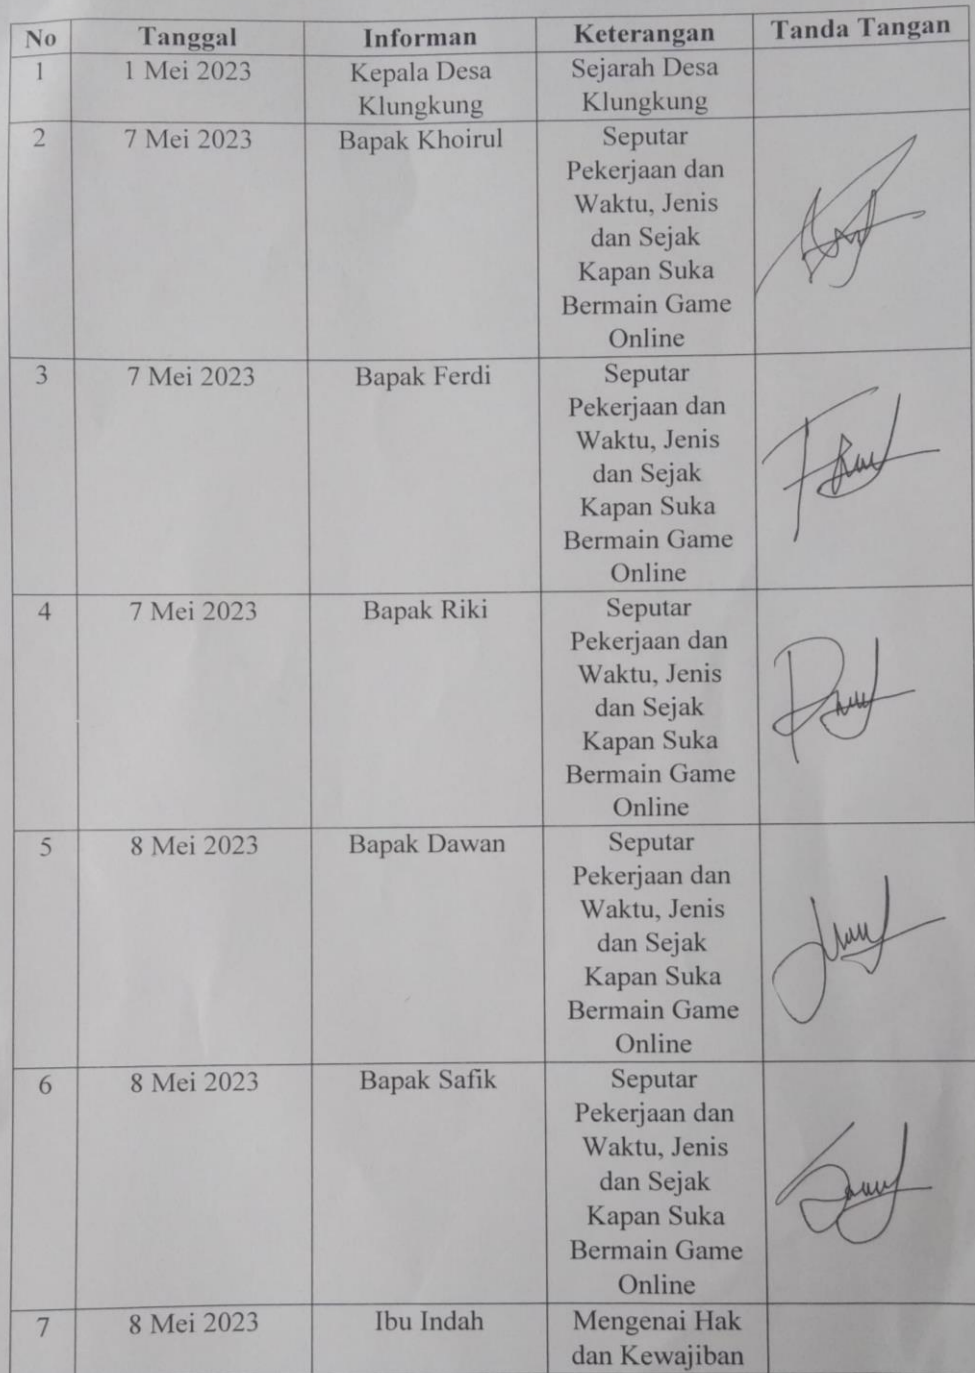 No Tanggal Informan Keterangan Tanda Tangan
1 1 Mei 2023 Kepala Desa Sejarah Desa
Klungkung Klungkung
2 7 Mei 2023 Bapak Khoirul Seputar
Pekerjaan dan
Waktu, Jenis
dan Sejak
Kapan Suka
Bermain Game
Online
3 7 Mei 2023 Bapak Ferdi Seputar
Pekerjaan dan
Waktu, Jenis
dan Sejak
Kapan Suka
Bermain Game
Online
4 7 Mei 2023 Bapak Riki Seputar
Pekerjaan dan
Waktu, Jenis
dan Sejak
Kapan Suka
Bermain Game
Online
5 8 Mei 2023 Bapak Dawan Seputar
Pekerjaan dan
Waktu, Jenis
dan Sejak
Kapan Suka
Bermain Game
Online
6 8 Mei 2023 Bapak Safik Seputar
Pekerjaan dan
Waktu, Jenis
dan Sejak
Kapan Suka
Bermain Game
Online
7 8 Mei 2023 Ibu Indah Mengenai Hak
dan Kewajiban